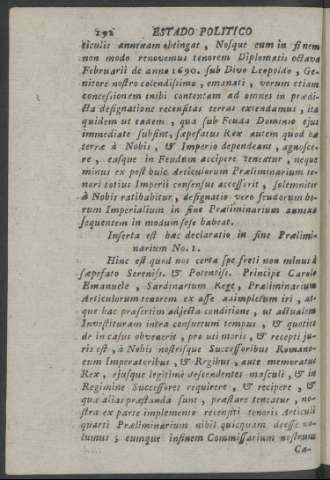 292 ESTADO POLITICO
ticulis annexam obtingat, Nosque eum in finem
non modo renovemus tenorem Diplomatis octava
Februarii de anno 1690. sub Divo Leopoldo, Ge-
nitore nostro colendissimo, emanati, verum etiam
concesionem inibi contentam ad omnes in prædi-
cta designatione recensitas terras extendamus, ita
quidem ut eadem, quæ sub Feuda Dominio ejus
immediate subsint, sæpefatus Rex autem quod hæ
terræ à Nobis, & Imperio dependeant, agnosce-
re, easque in Feudum accipere teneatur, neque
minus ex post huic Articulorum Præliminarium te-
nori totius Imperii consensus accesserit, solemniter
à Nobis ratihabitur, designatio vero feudorum ho-
rum Imperialium in fine Præliminarium annexa
sequentem in modum sese habeat.
Inserta est hæc declaratio in fine Prælimi-
narium No. 1.
Hinc est quod nos certa spe freti non minus à
sæpefato Sereniss. & Potentiss. Principe Carolo
Emanuele, Sardinarum Rege, Præliminarium
Articulorum tenorem ex asse adimpletum iri, at-
que hac præsertim adjecta conditione, ut actualem
Investituram intra consuetum tempus, & quoties
de in casus obvenerit, pro uti moris, & recepti ju-
ris est, à Nobis nostrisque Successoribus Romano-
rum Imperatoribus, & Regibus, ante memoratus
Rex, ejusque legitimè descendentes masculi, & in
Regimine Successores requirere, & recipere, &
quæ alias præstanda sunt, præstare teneatur, no-
stra ex parte implemento recensiti tenoris Articuli
quarti Præliminarium nihil quicquam deesse vo-
lumus; eumque infinem Commissarium nostrum
Ca-